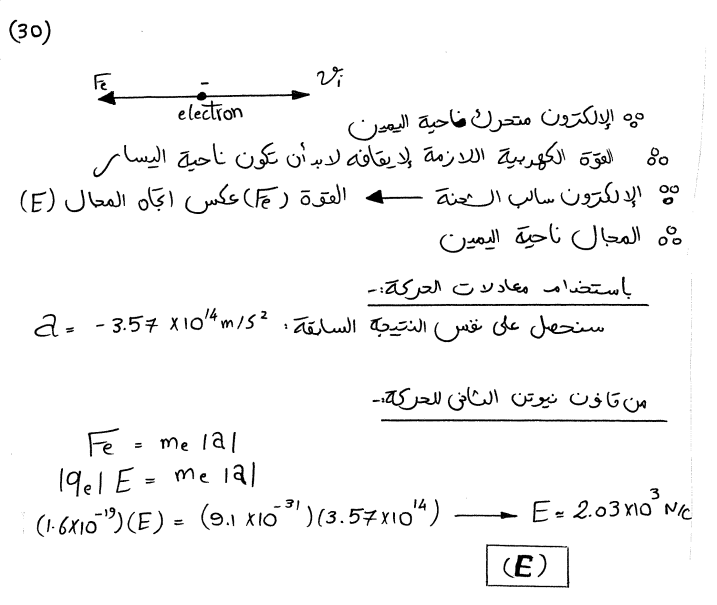 (30)
Fe - vi
electron
∵ الإلكترون متحرك ناحية اليمين
∴ القوة الكهربية اللازمة لإيقافه لابد أن تكون ناحية اليسار
∵ الإلكترون سالب الشحنة ← القوة (Fe) عكس اتجاه المجال (E)
∴ المجال ناحية اليمين
باستخدام معادلات الحركة:-
سنحصل على نفس النتيجة السابقة: a = -3.57 x10¹⁴ m/s²
من قانون نيوتن الثاني للحركة:-
Fe = me |a|
|qe| E = me |a|
(1.6x10⁻¹⁹)(E) = (9.1 x10⁻³¹)(3.57x10¹⁴) → E = 2.03x10³ N/C
(E)